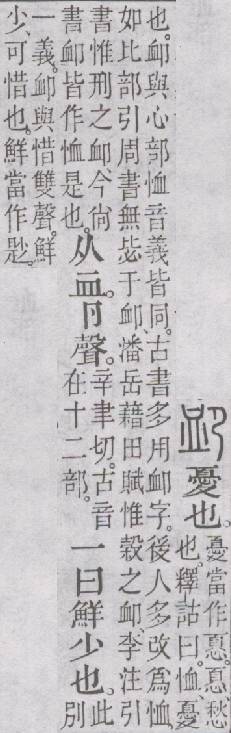 卹憂也。憂當作㥑。㥑、愁
也。釋詁曰。恤、憂
也。卹與心部恤音義皆同。古書多用卹字。後人多改爲恤。
如比部引周書無毖于卹、潘岳藉田賦惟穀之卹、李注引
書惟刑之卹、今尚
書卹皆作恤是也。从血。卪聲。辛聿切。古音
在十二部。一曰鮮少也。此
別
一義。卹與惜雙聲。鮮
少、可惜也。鮮當作尟。